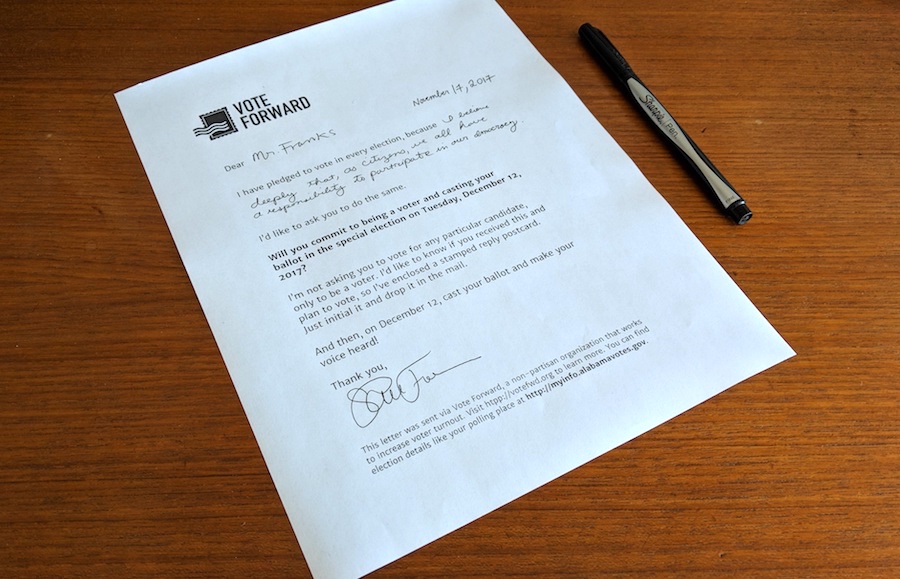 VOTE
FORWARD
November 17, 2017
Dear Mr. Franks
I have pledged to vote in every election, because I believe
deeply that, as citizens, we all have
a responsibility to participate in our democracy.
I'd like to ask you to do the same.
Will you commit to being a voter and casting your
ballot in the special election on Tuesday, December 12,
2017?
I'm not asking you to vote for any particular candidate,
only to be a voter. I'd like to know if you received this and
plan to vote, so I've enclosed a stamped reply postcard.
Just initial it and drop it in the mail.
And then, on December 12, cast your ballot and make your
voice heard!
Thank you,
This letter was sent via Vote Forward, a non-partisan organization that works
to increase voter turnout. Visit htpp://votefwd.org to learn more. You can find
election details like your polling place at http://myinfo.alabamavotes.gov.
Sharpie PEN